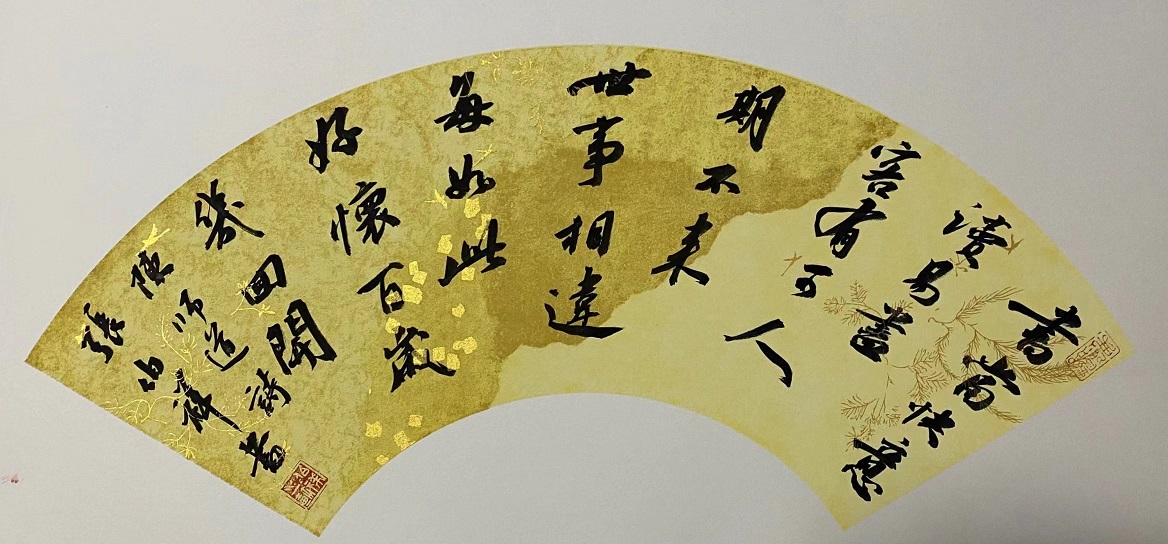 書當快意
讀易盡
客有可人
期不来
世事相違
每如此
好懷百歲
幾回開
陳師道詩
張伯祥書